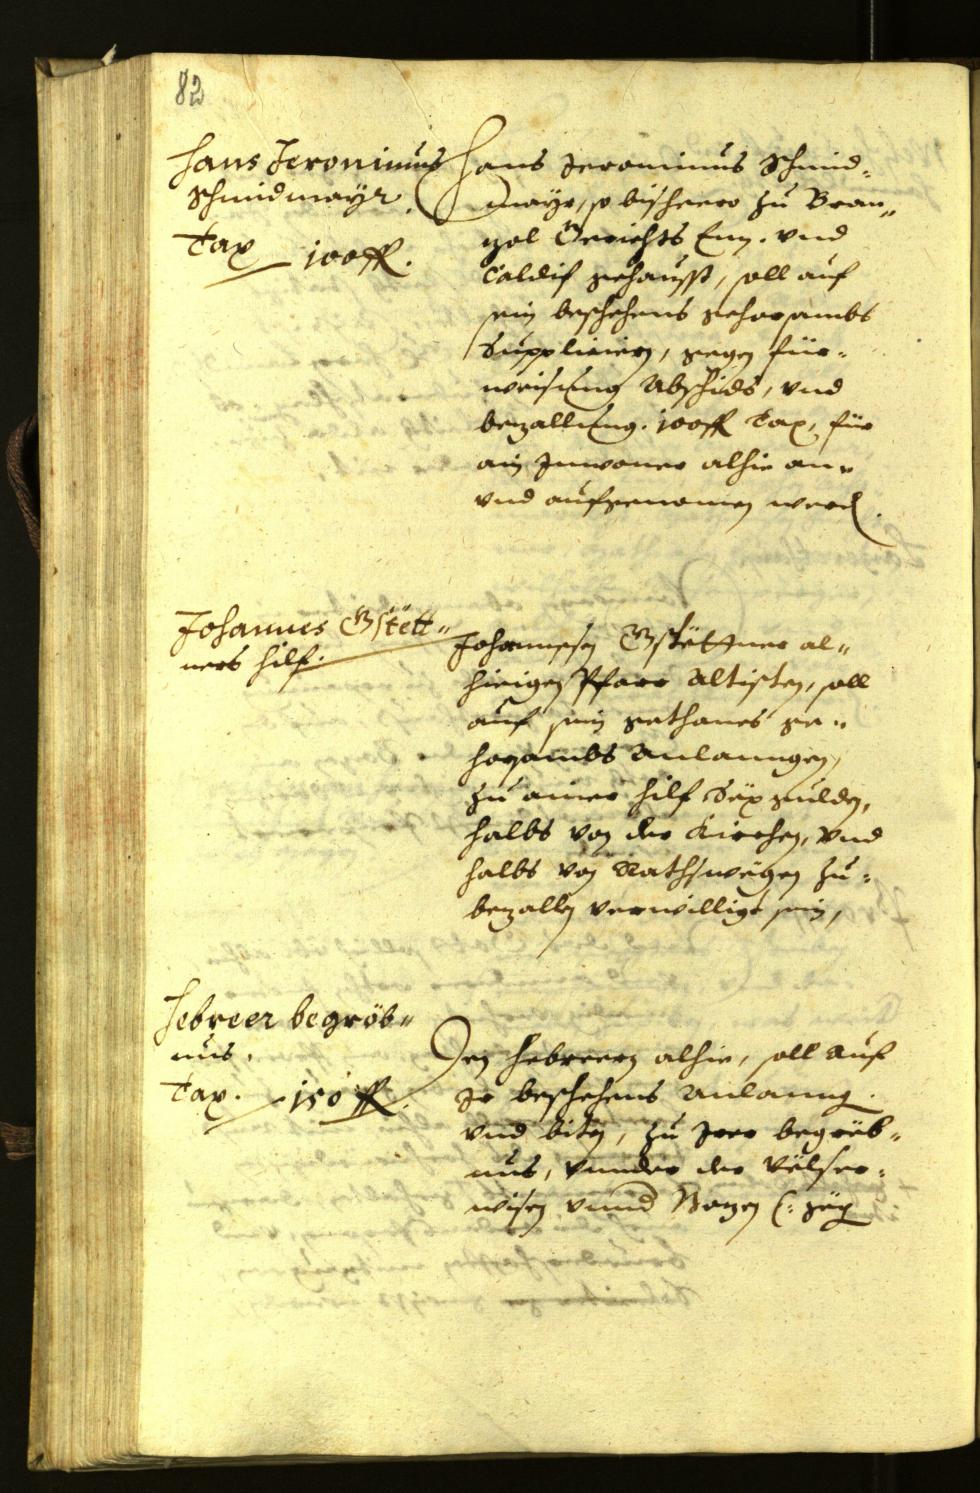 82
Hans Jeronimus
Schmidmayr.
Tax 100 fl.
Hans Jerominus Schmid-
mayr, so bisheero zu Bran-
zol Gerichts Enn. vnd
Caldif gehausst, soll auf
sein beschehens gehorsambs
Supplicirn, gegen für-
weisung Abschids, vnd
bezallung. 100 fl Tax, für
ain Inwoner alhie an-
vnd aufgenomen werd.
Johannes Gstëtt-
ners hilf.
Johannssen Gstëttner al-
hieigen Pfarr Altisten, soll
auf sein gethanes ge-
horsambs Anlanngen,
zu ainer hilf Sëx gulden,
halbs von der Kirchen, vnd
halbs von Rathswëgen zu-
bezallen verwilligt sein,
Hebreer begröb-
nus.
Tax. 150 fl.
Den Hebreern alhie, soll auf
Ir beschehens Anlanng.
vnd biten, zu Irer begrëb-
nus, vnnder der Vëlser-
wisen vnnd Bozen (: